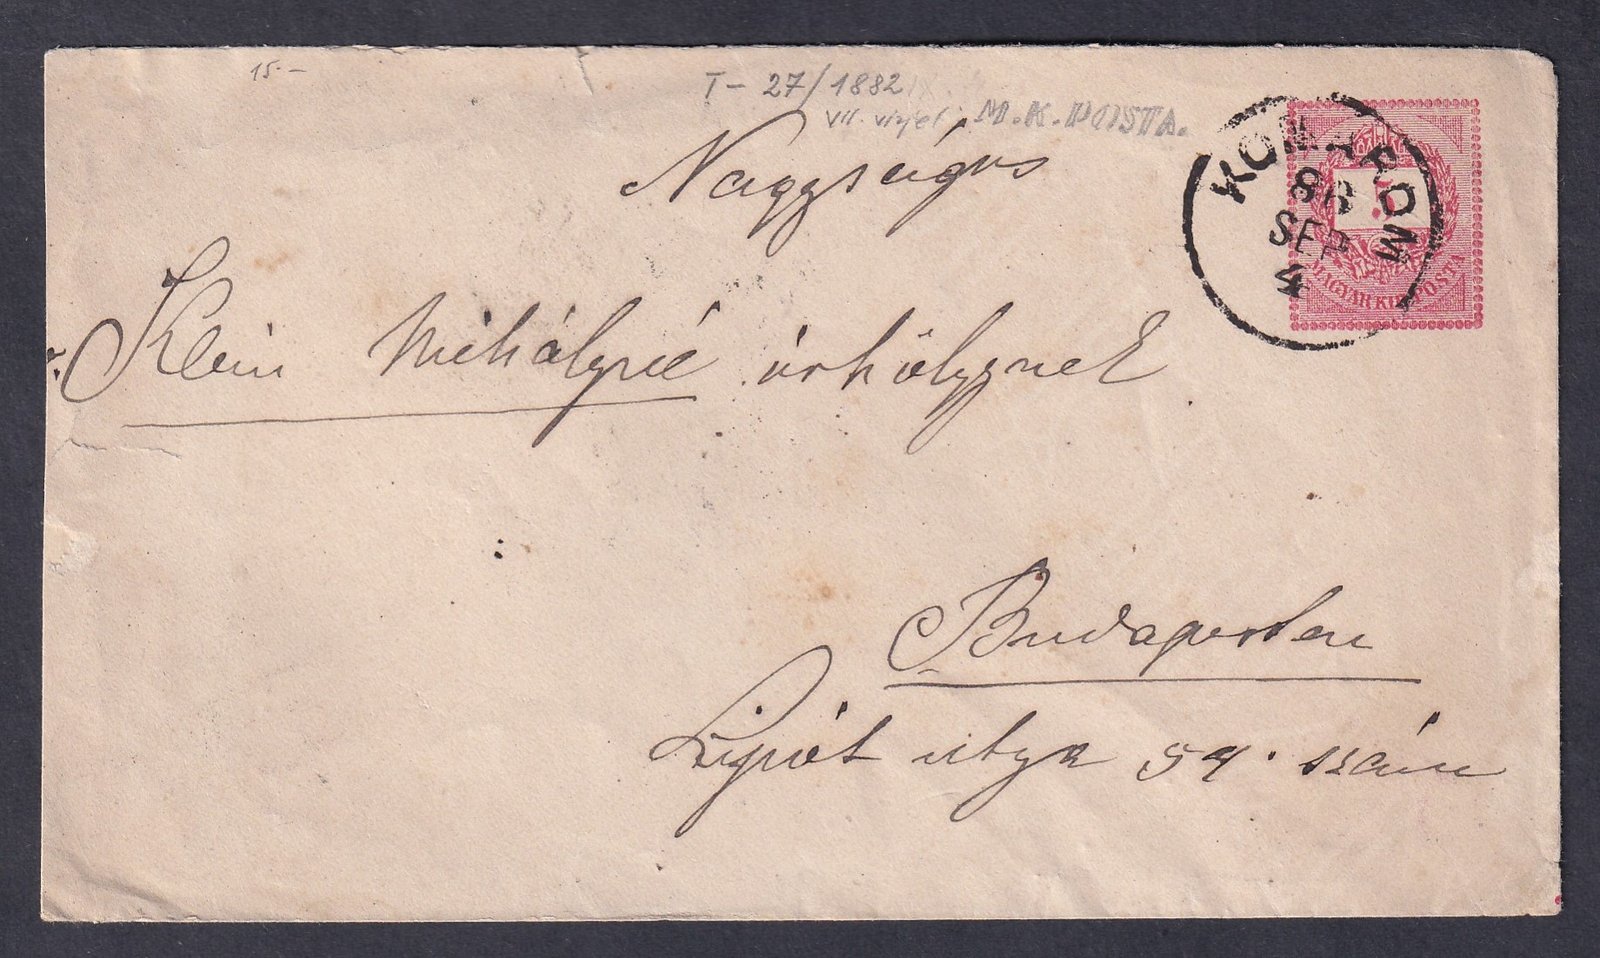 15.-
T- 27/1882
VII. vizjel: M.K.POSTA.
KOMAROM
86
SEP
4
5
MAGYAR KIR. POSTA
Nagyságos
Klein Mihályné úrhölgynek
Budapesten
Lipót utcza 54. szám